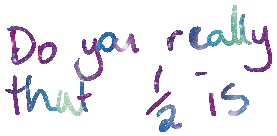 Do you really
that 1/2 is